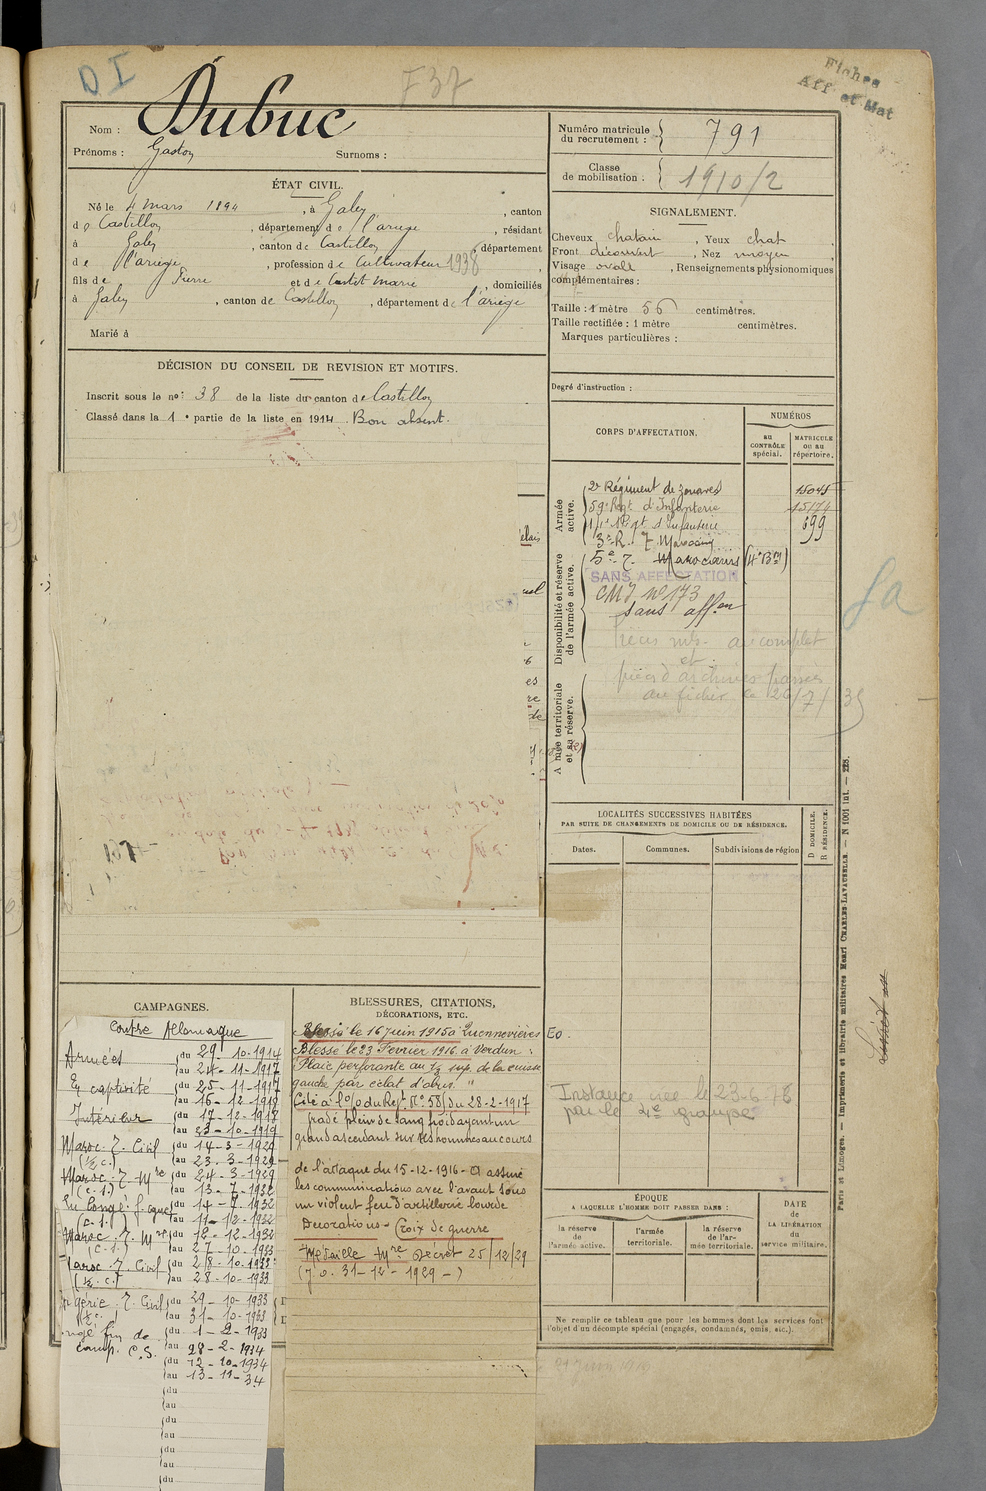 D I
F37
Fiches
Aff. et Mat
Nom : Dubuc
Prénoms : Gaston Surnoms :
ÉTAT CIVIL.
Né le 4 mars 1894, à Galey, canton
de Castillon, département de l'ariège, résidant
à Galey, canton de Castillon, département
de l'ariège, profession de Cultivateur 1938
fils de Pierre et de Castet marie, domiciliés
à Galey, canton de Castillon, département de l'ariège
Marié à
DÉCISION DU CONSEIL DE REVISION ET MOTIFS.
Inscrit sous le no: 38 de la liste du canton de Castillon
Classé dans la 1e partie de la liste en 1914. Bon absent.
Numéro matricule du recrutement : 791
Classe de mobilisation : 1910/2
SIGNALEMENT.
Cheveux chatain, Yeux chat
Front découvert, Nez moyen
Visage ovale, Renseignements physionomiques
complémentaires :
Taille : 1 mètre 56 centimètres.
Taille rectifiée : 1 mètre centimètres.
Marques particulières :
Degré d'instruction :
CORPS D'AFFECTATION.
NUMÉROS
au CONTRÔLE spécial.
MATRICULE ou au répertoire.
Armée active.
2e Régiment de zouaves 15045
59e Regt d'Infanterie 15174
d'Infanterie 699
3e R. T. Marocains
Disponibilité et réserve de l'armée active.
5e T. Marocains (4e Bon)
SANS AFFECTATION
CMJ No 173
sans affon
au complet
et
pièces d'archives passées
au fichier le 26/7/35
Armée territoriale et sa réserve.
fa
LOCALITÉS SUCCESSIVES HABITÉES
PAR SUITE DE CHANGEMENTS DE DOMICILE OU DE RÉSIDENCE.
Dates.
Communes.
Subdivisions de région
D DOMICILE.
R RÉSIDENCE.
Instance née le 23-6-76
par le 4e groupe
CAMPAGNES.
Contre Allemagne
Armées du 29-10-1914
au 24-11-1917
En captivité du 25-11-1917
au 16-12-1917
Intérieur du 17-12-1917
au 23-10-1919
Maroc. T. Civil du 14-3-1929
(½ c.) au 23-3-1929
Maroc. T. Mre du 24-3-1929
(c. s.) au 13-7-1932
En Congé f. camp. du 14-7-1932
(c. s.) au 11-12-1932
Maroc. T. Mre du 12-12-1932
(c. s.) au 27-10-1933
Maroc. T. Civil du 28-10-1933
(½ c.) au 28-10-1933
Algérie. T. Civil du 29-10-1933
(½ c.) au 31-10-1933
Congé fin de du 1-2-1933
camp. C.S. au 28-2-1934
du 12-10-1934
au 13-11-34
du
au
du
au
du
au
du
BLESSURES, CITATIONS,
DÉCORATIONS, ETC.
Blessé le 16 juin 1915 à Quennevières
Blessé le 23 Fevrier 1916 à Verdun :
Plaie perforante au ⅓ sup. de la cuisse
gauche par éclat d'obus "
Cité à l'o/o du Regt No 58 du 28-2-1917
gradé plein de sang froid ayant un
grand ascendant sur ses hommes au cours
de l'attaque du 15-12-1916 - a assuré
les communications avec l'avant sous
un violent feu d'artillerie lourde
Decorations - Croix de guerre
Médaille Mre Décret 25/12/29
(J.O. 31-12-1929-)
ÉPOQUE
A LAQUELLE L'HOMME DOIT PASSER DANS :
la réserve de l'armée active.
l'armée territoriale.
la réserve de l'armée territoriale.
DATE de LA LIBÉRATION du service militaire.
Ne remplir ce tableau que pour les hommes dont les services font
l'objet d'un décompte spécial (engagés, condamnés, omis, etc.).
Paris et Limoges. — Imprimerie et librairie militaires Henri CHARLES-LAVAUZELLE. — N 1001 Int. — 228.